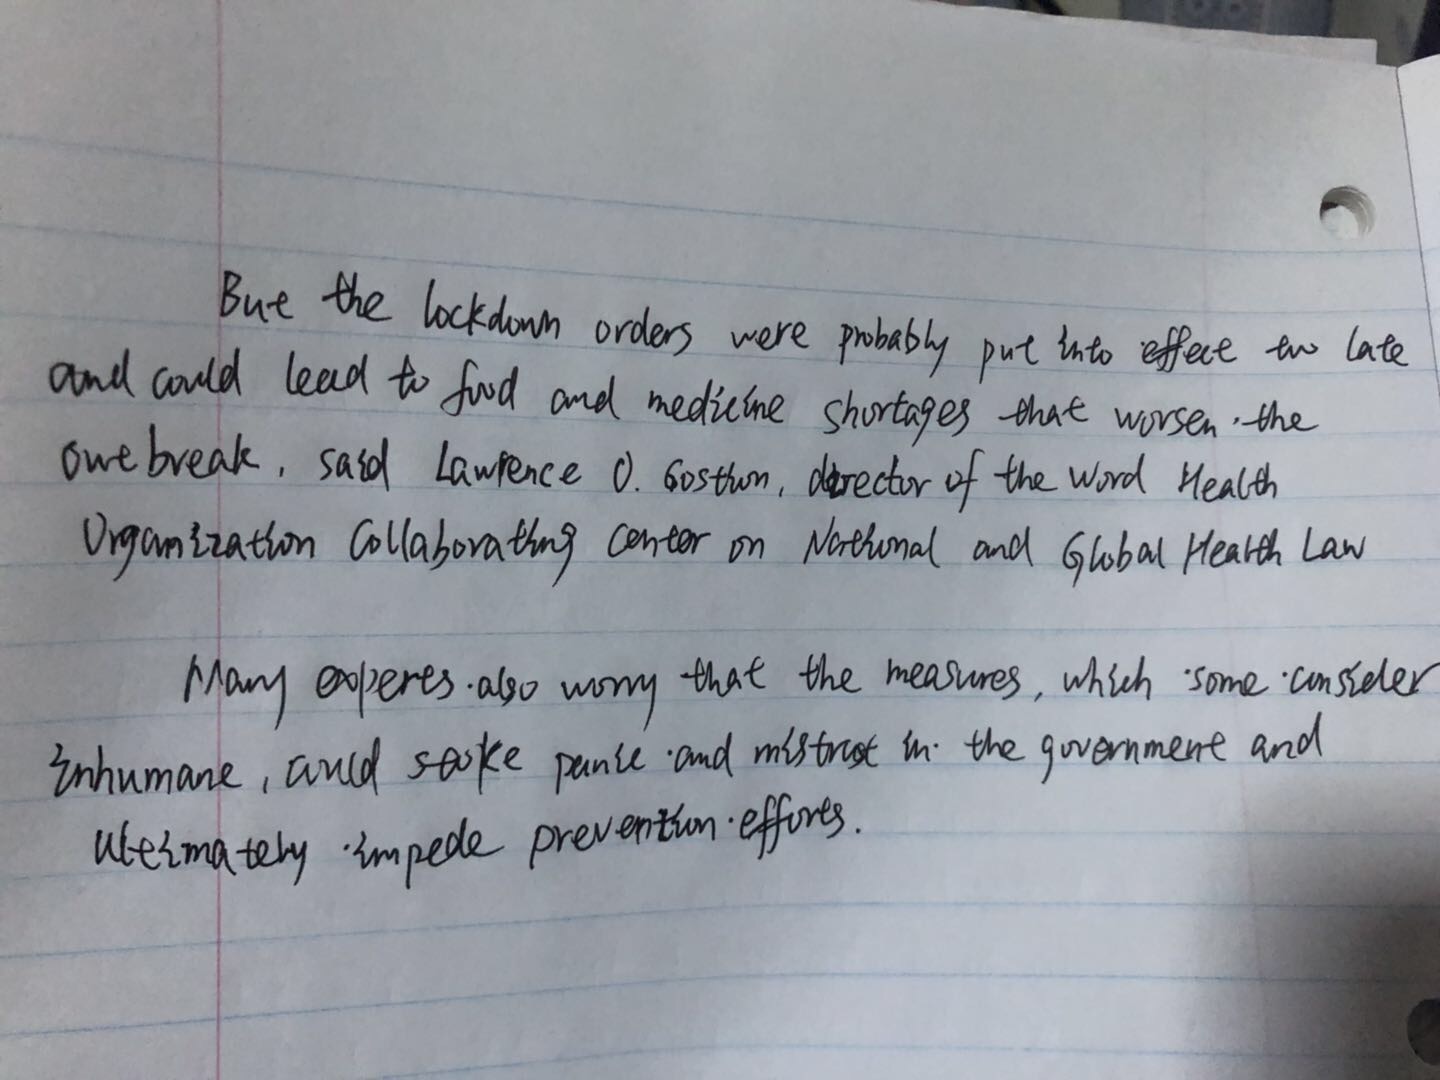 But the lockdown orders were probably put into effect too late
and could lead to food and medicine shortages that worsen the
outbreak, said Lawrence O. Gostion, director of the Word Health
Organization Collaborating Center on National and Global Health Law
Many experts also worry that the measures, which some consider
inhumane, could stoke panic and mistrust in the government and
ultimately impede prevention efforts.